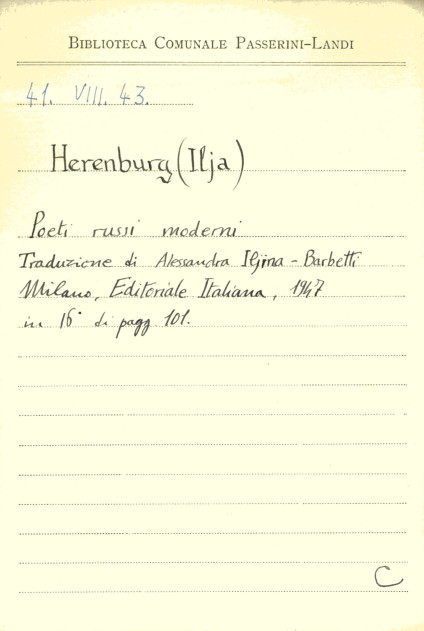 BIBLIOTECA COMUNALE PASSERINI-LANDI
41. VIII. 43.
Herenburg (Ilja)
Poeti russi moderni
Traduzione di Alessandra Iljina-Barbetti
Milano, Editoriale Italiana, 1947
in 16° di pagg 101.
C